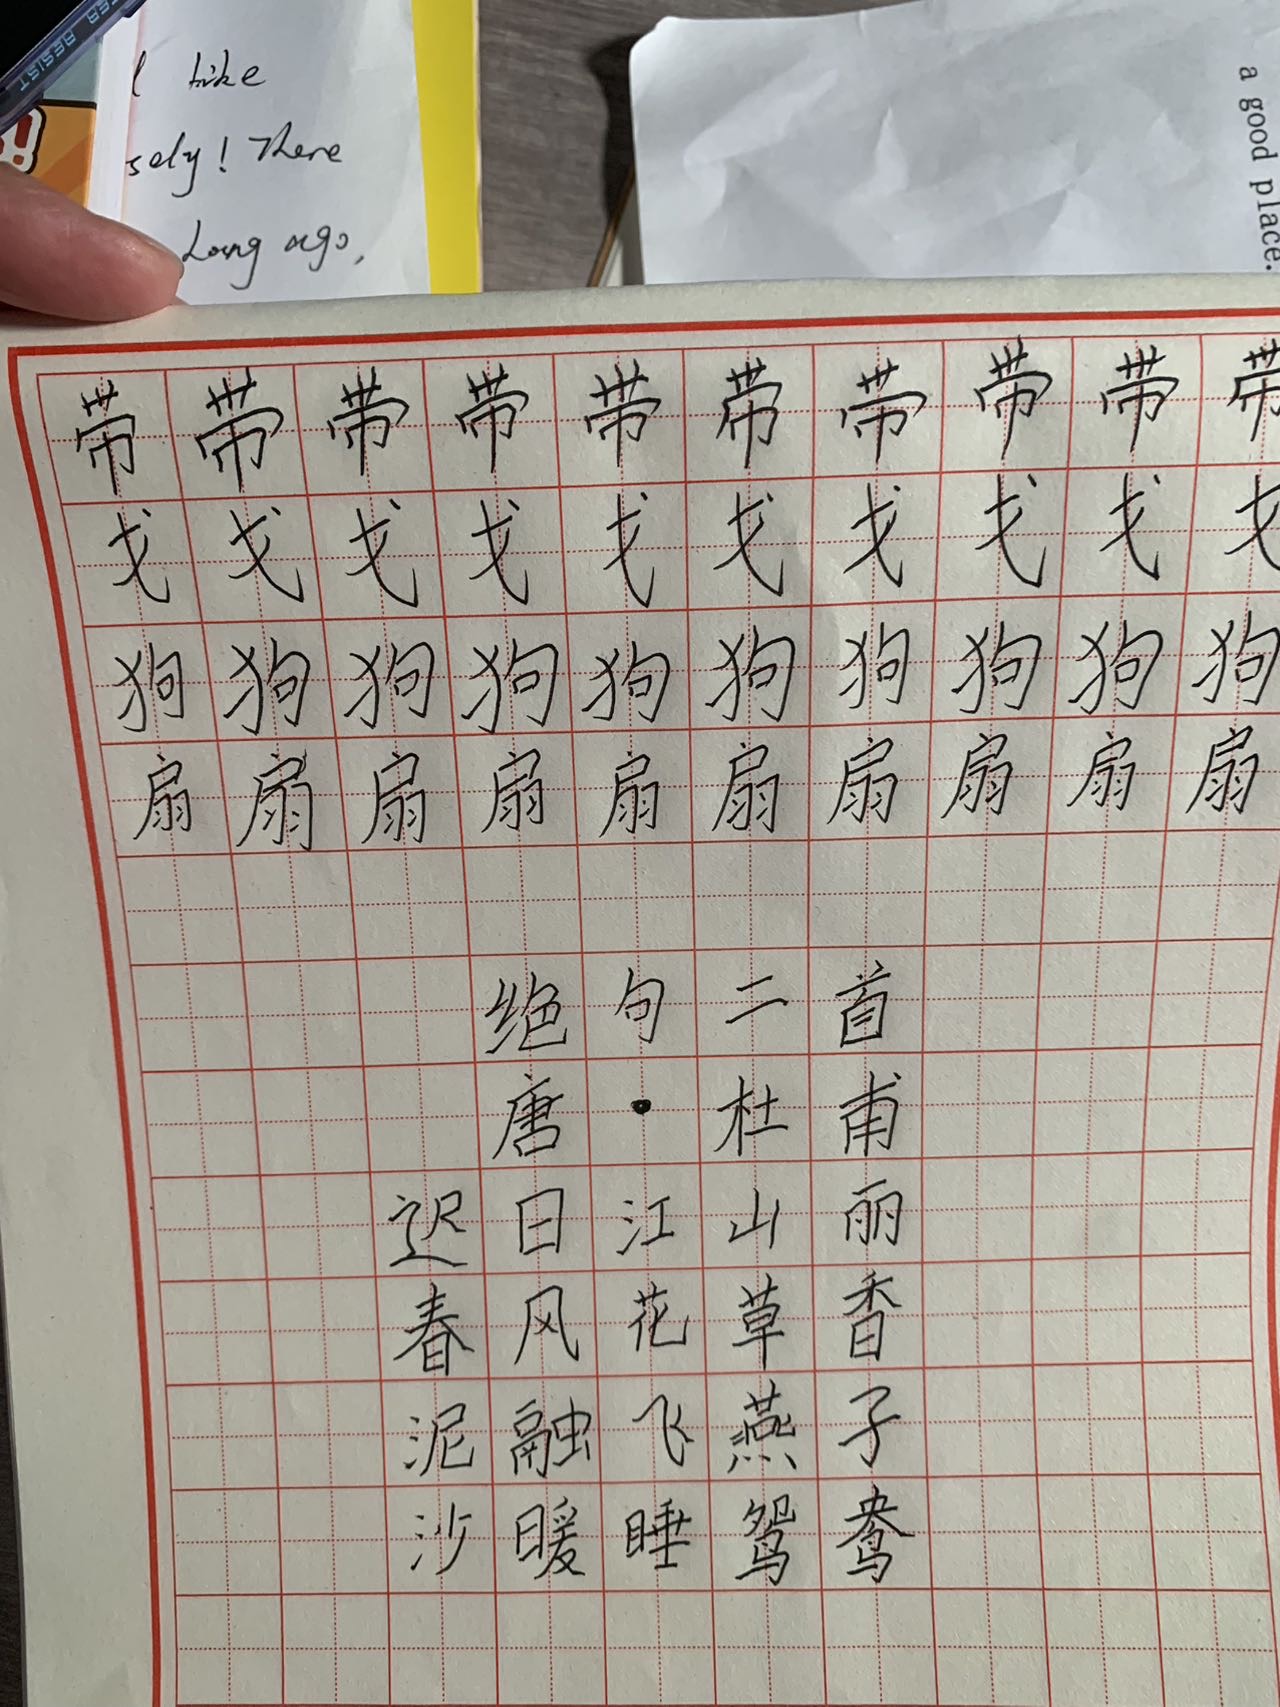 TER RESIST
l like
sely! There
Long ago,
a good place.
带带带带带带带带带带
戈戈戈戈戈戈戈戈戈戈
狗狗狗狗狗狗狗狗狗狗
扇扇扇扇扇扇扇扇扇扇
绝句二首
唐·杜甫
迟日江山丽
春风花草香
泥融飞燕子
沙暖睡鸳鸯